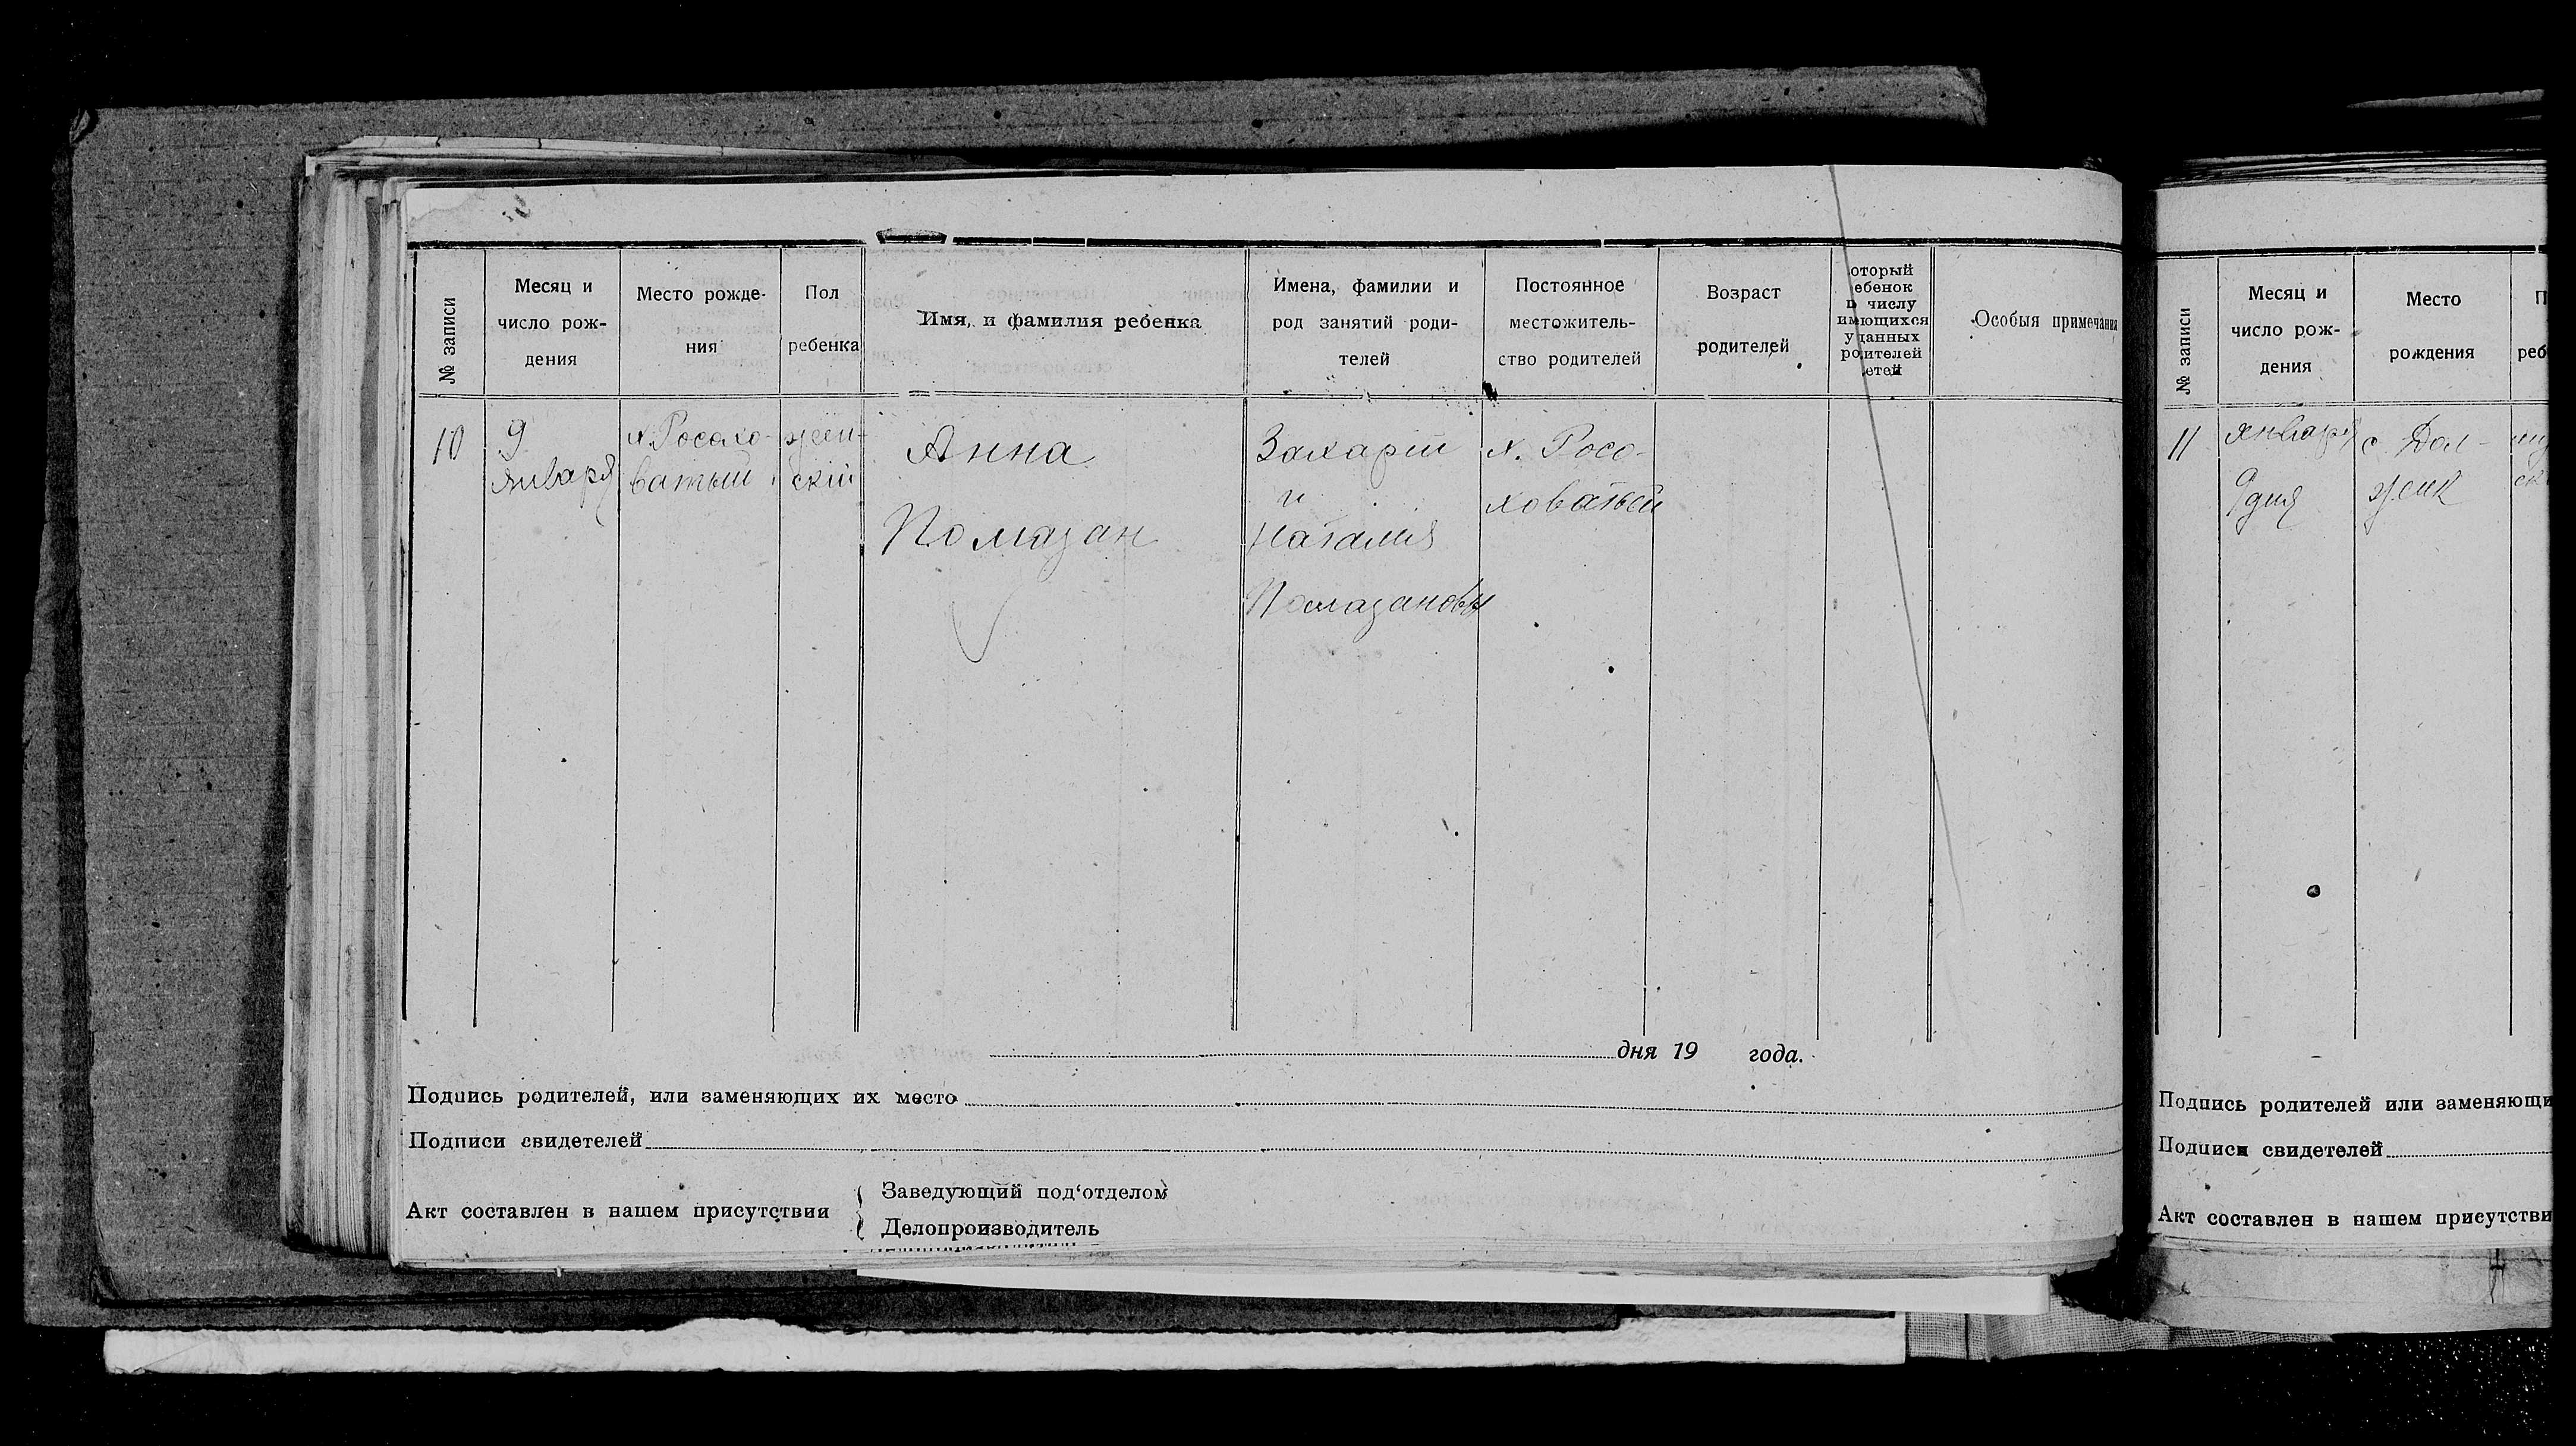 № записи
Месяц и
число рож-
дения
Место рожде-
ния
Пол
ребенка
Имя, и фамилия ребенка
Имена, фамилии и
род занятий роди-
телей
Постоянное
местожитель-
ство родителей
Возраст
родителей
оторый
ебенок
п числу
имеющихся
у данных
родителей
етей
Особыя примечания
10
9
января
х. Росохо-
ватый
жен-
скій
Анна
Помазан
Захарій
и
Наталія
Помазановы
х. Росо-
ховатый
дня 19 года.
Подпись родителей, или заменяющих их место
Подписи свидетелей
Акт составлен в нашем присутствии
Заведующий под'отделом
Делопроизводитель
№ записи
Месяц и
число рож-
дения
Место
рождения
П
реб
11
января
9 дня
с. Дол-
жик
Подпись родителей или заменяющи
Подписи свидетелей
Акт составлен в нашем присутстви